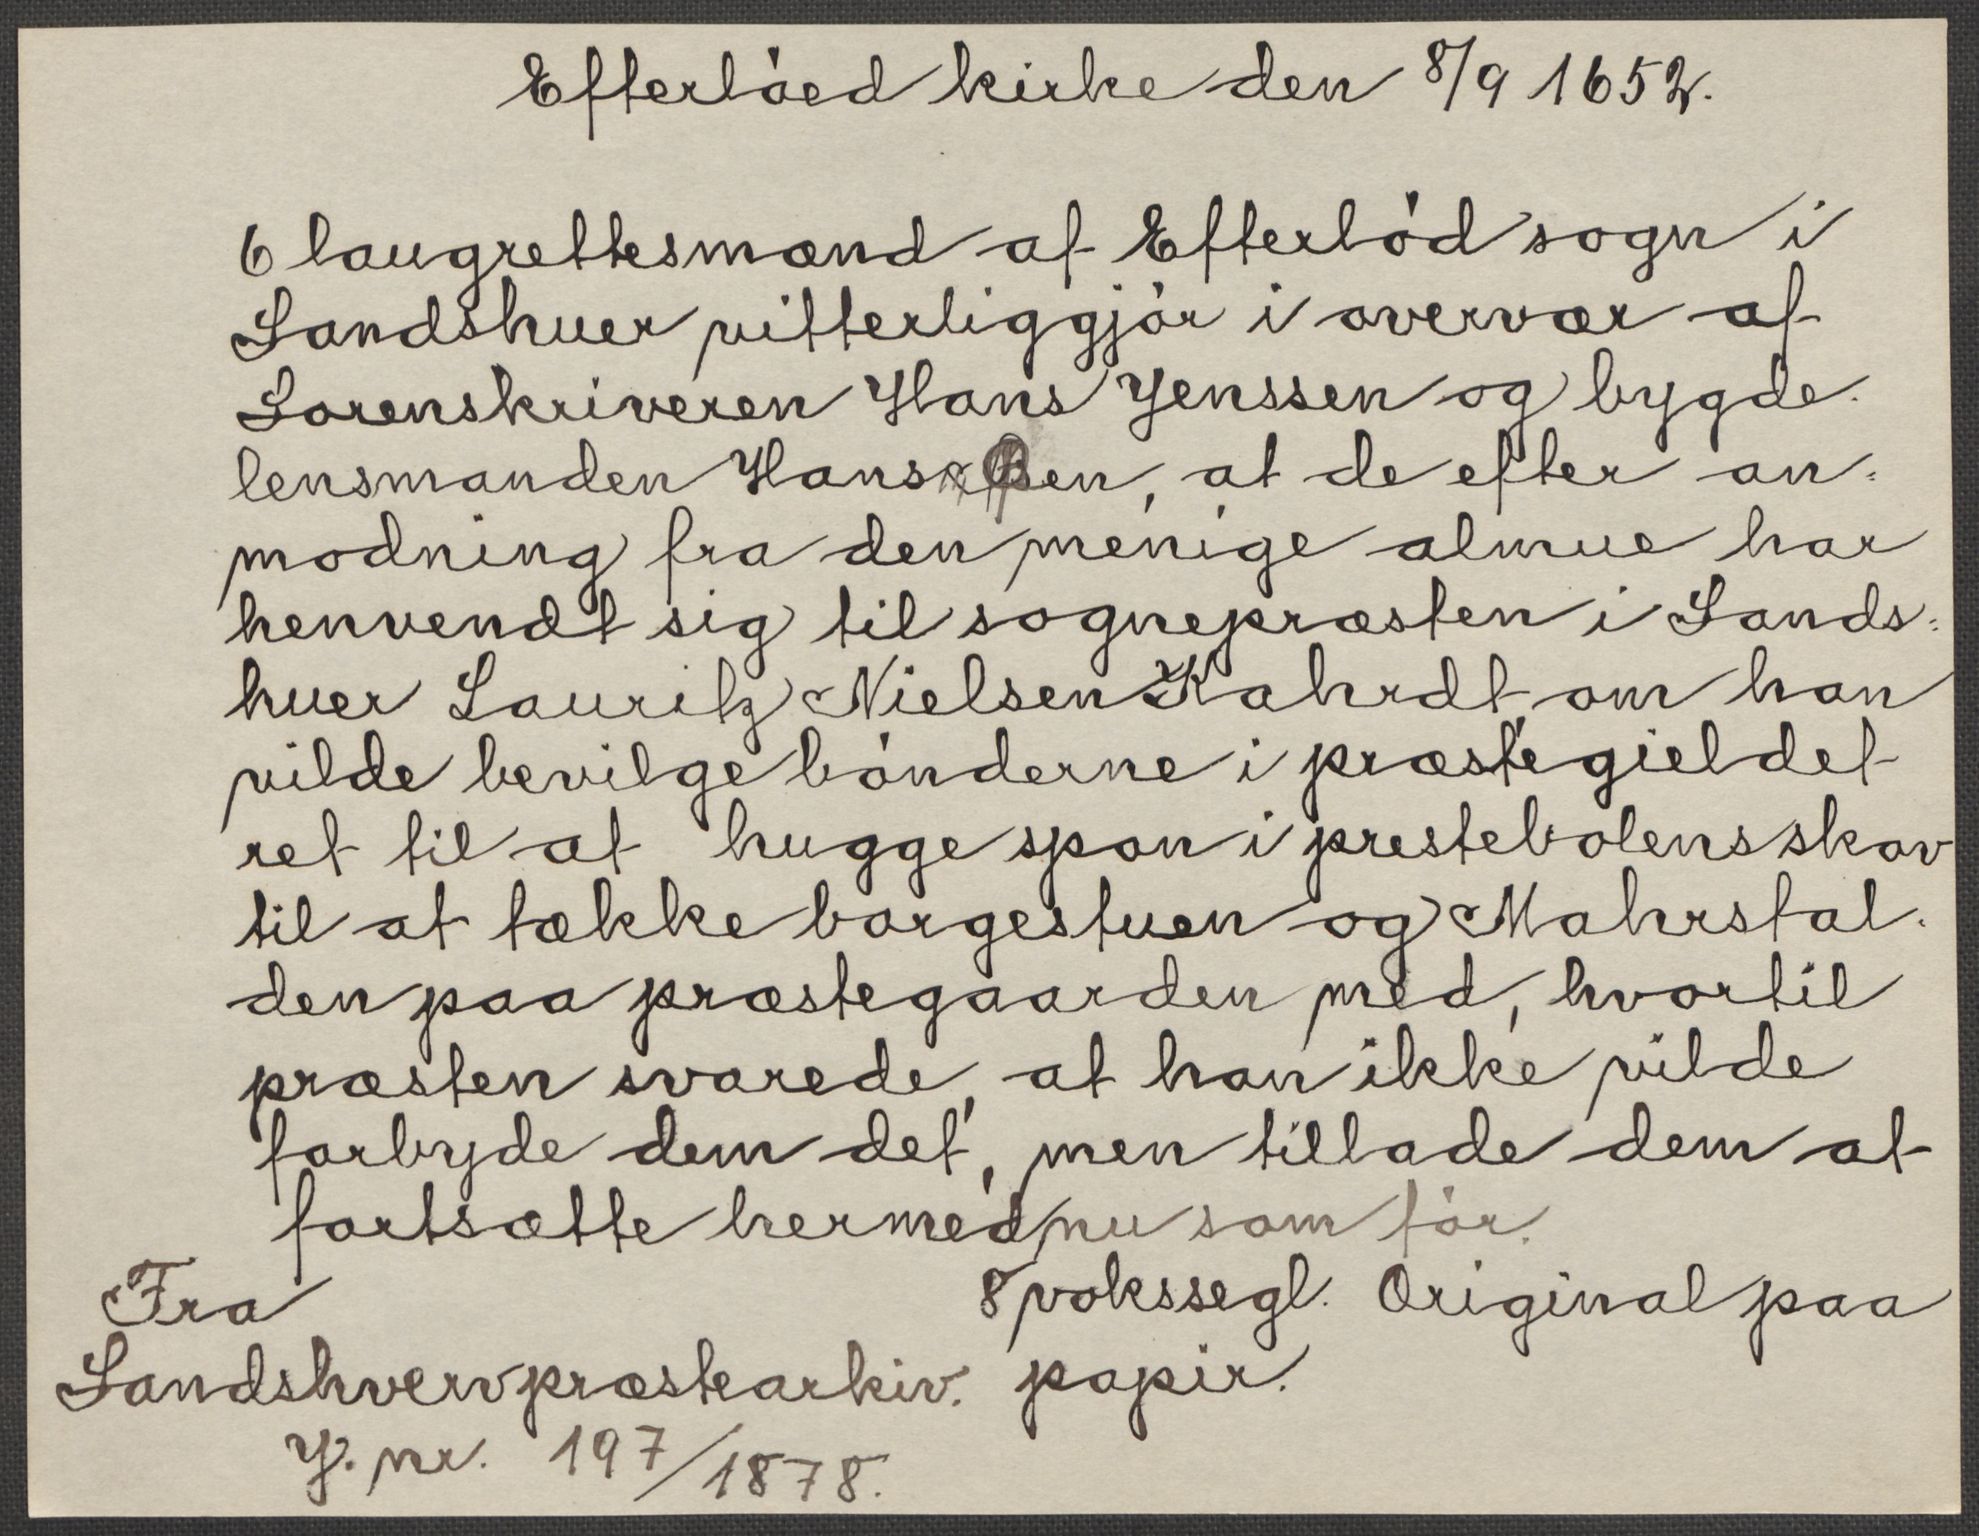 Efterløed kirke den 8/9 1652.
6 laugrettesmænd af Efterlød sogn i
Sandshuer vitterliggjør i overvær af
Sorenskriveren Hans Jenssen og bygde-
lensmanden Hans Olsen, at de efter an-
modning fra den menige almue har
henvendt sig til sognepræsten i Sands-
huer Lauritz Nielsen Kahrdt om han
vilde bevilge bønderne i præstegieldet
ret til at hugge spon i prestebolens skov
til at tække borgestuen og Mahrstal-
den paa præstegaarden med, hvortil
præsten svarede, at han ikke vilde
forbyde dem det, men tillade dem at
fortsætte hermed nu som før.
Fra 8 vokssegl. Original paa
Sandshverv præstearkiv. papir.
J. nr. 197/1878.